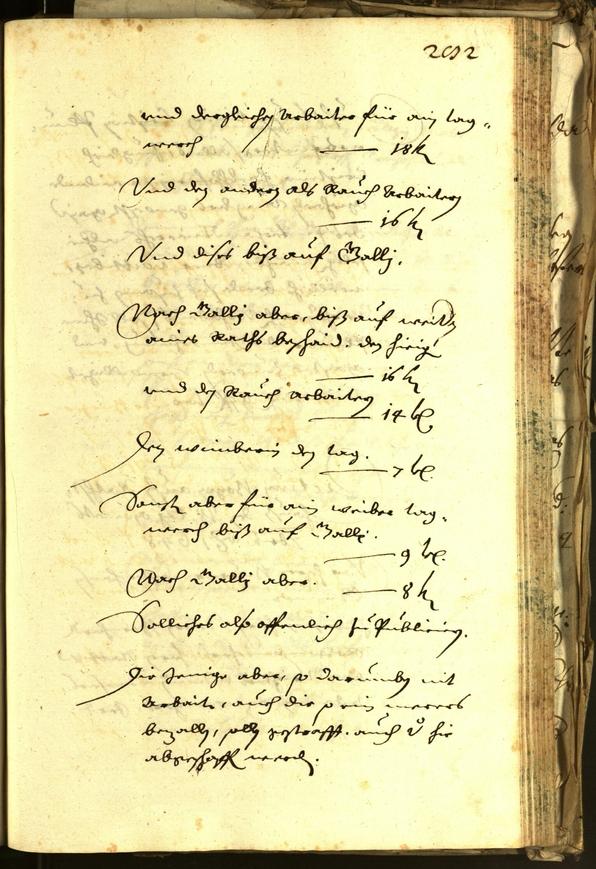 202
vnd dergleichen Arbaiter für ain tag-
werch — 18 k
Vnd den andern als Rauch Arbaitern
— 16 k
Vnd dises biß auf Gallj.
Nach Gallj aber, biß auf weitt
aines Raths beschaid. den
— 16 k
vnd den Rauch arbaitern
— 14 kr.
Den wimberin den tag.
— 7 kr.
Sonst aber für ain weiber tag-
werch biß auf Gallj.
— 9 kr.
Nach Gallj aber. — 8 k
Solliches also offenlich zu Publiciern.
Die Jenige aber, so darumben nit
Arbaiten, auch die so ein merers
bezalln, solln gestrafft. auch
abgeschafft werden.